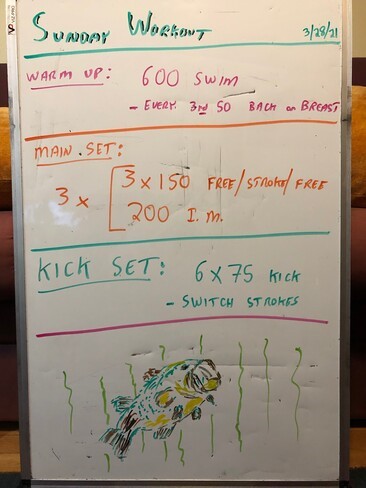 SUNDAY WORKOUT
3/28/21
WARM UP: 600 SWIM
- EVERY 3rd 50 BACK or BREAST
MAIN SET:
3 x [ 3 x 150 FREE/STROKE/FREE
200 I.M.
KICK SET: 6 x 75 KICK
- SWITCH STROKES